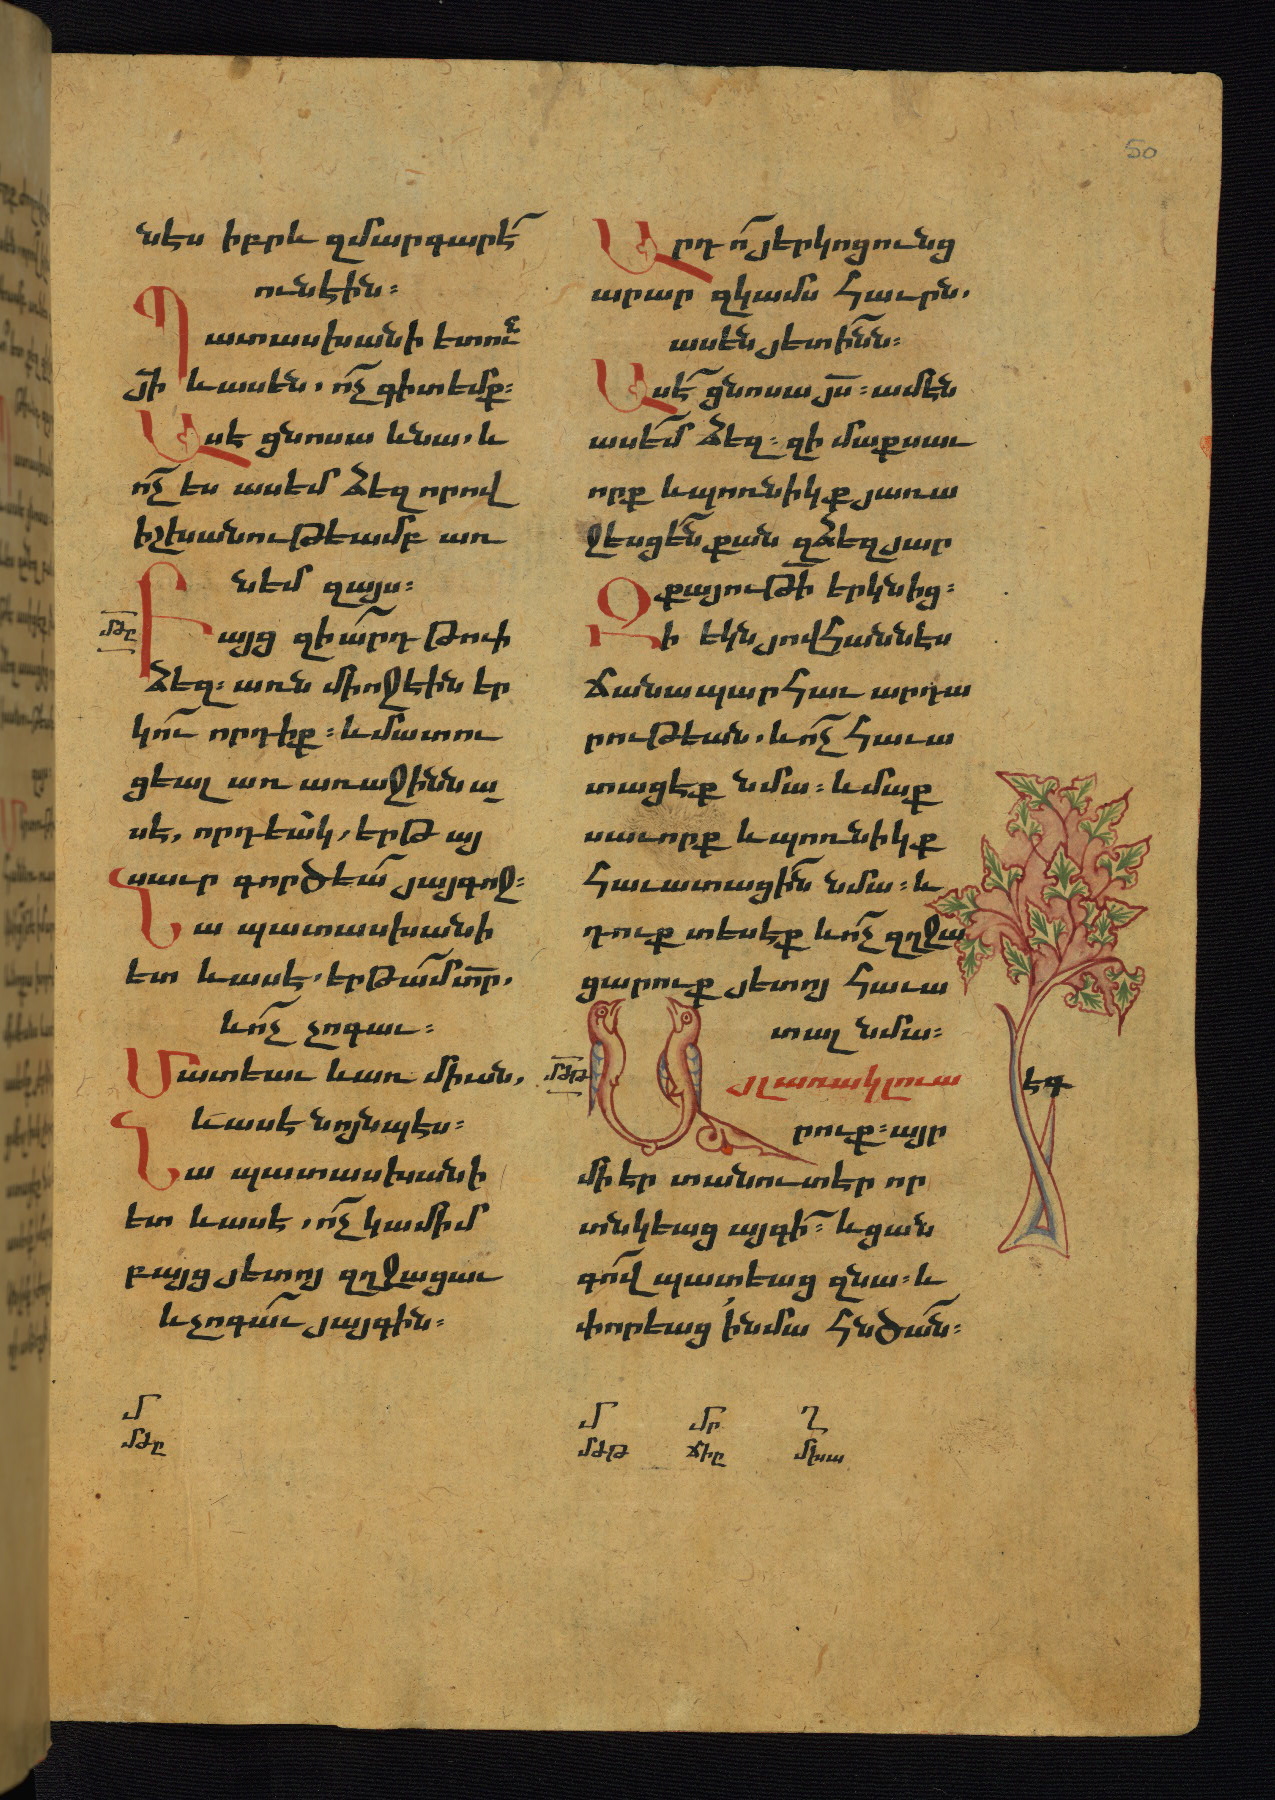 50
նէս իբրև զմարգարէ՟
ունէին։
Պատասխանի ետու՟ն
յի՟ և ասեն, ո՟չ գիտեմք։
Ասէ ցնոսա և նա, և
ո՟չ ես ասեմ ձեզ որով
իշխանութեամբ առ
նեմ զայս։
մթը
Բայց զի ա՟րդ թուի
ձեզ։ առն միոջ էին եր
կու՟ որդիք։ և մատու
ցեալ առ առաջինն ա
սէ, որդեակ, երթ այ
սաւր գործեա՟ յայգոջ։
Նա պատասխանի
ետ և ասէ, երթա՟մ տ՟ր,
և ո՟չ չոգաւ։
Մատեաւ և առ միւսն,
և ասէ նոյնպէս։
Նա պատասխանի
ետ և ասէ, ո՟չ կամիմ
բայց յետոյ զղջացաւ
և չոգա՟ւ յայգին։
մ
մթը
Արդ ո՟ յերկոցունց
արար զկամս հաւրն,
ասեն յետի՟նն։
Ասէ՟ ցնոսա յս՟։ ամէն
ասե՟մ ձեզ։ զի մաքսաւ
որք և պոռնիկք յառա
ջեսցե՟ն քան զձեզ յար
քայութի՟ երկնից։
Զի եկն յովհաննէս
ճանապարհաւ արդա
րութեան, և ո՟չ հաւա
տացէք նմա։ և մաք
սաւորք և պոռնիկք
հաւատացի՟ն նմա։ և
դուք տեսէք և ո՟չ զղջա
ցարուք յետոյ հաւա
տալ նմա։
մժթ
Այլ առակ լուա
րուք։ այր
եգ
մի էր տանուտէր որ
տնկեաց այգի՟։ և ցան
գո՟վ պատեաց զնա։ և
փորեաց ի նմա հնծա՟ն։
մ
մժթ
մր
ճիը
ղ
մխա